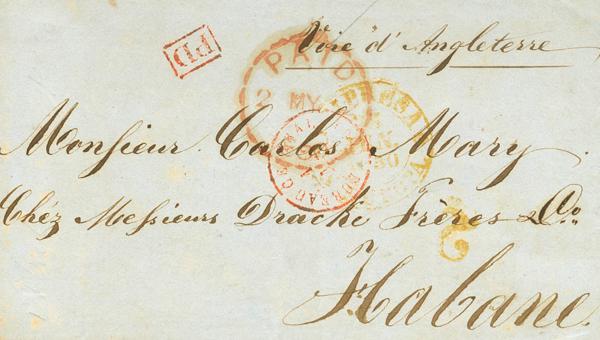 Voie d'Angleterre
PD
PAID
2 MY
Monsieur Carlos Mary
Chéz Messieurs Dracke Frères & Co.
Habane.